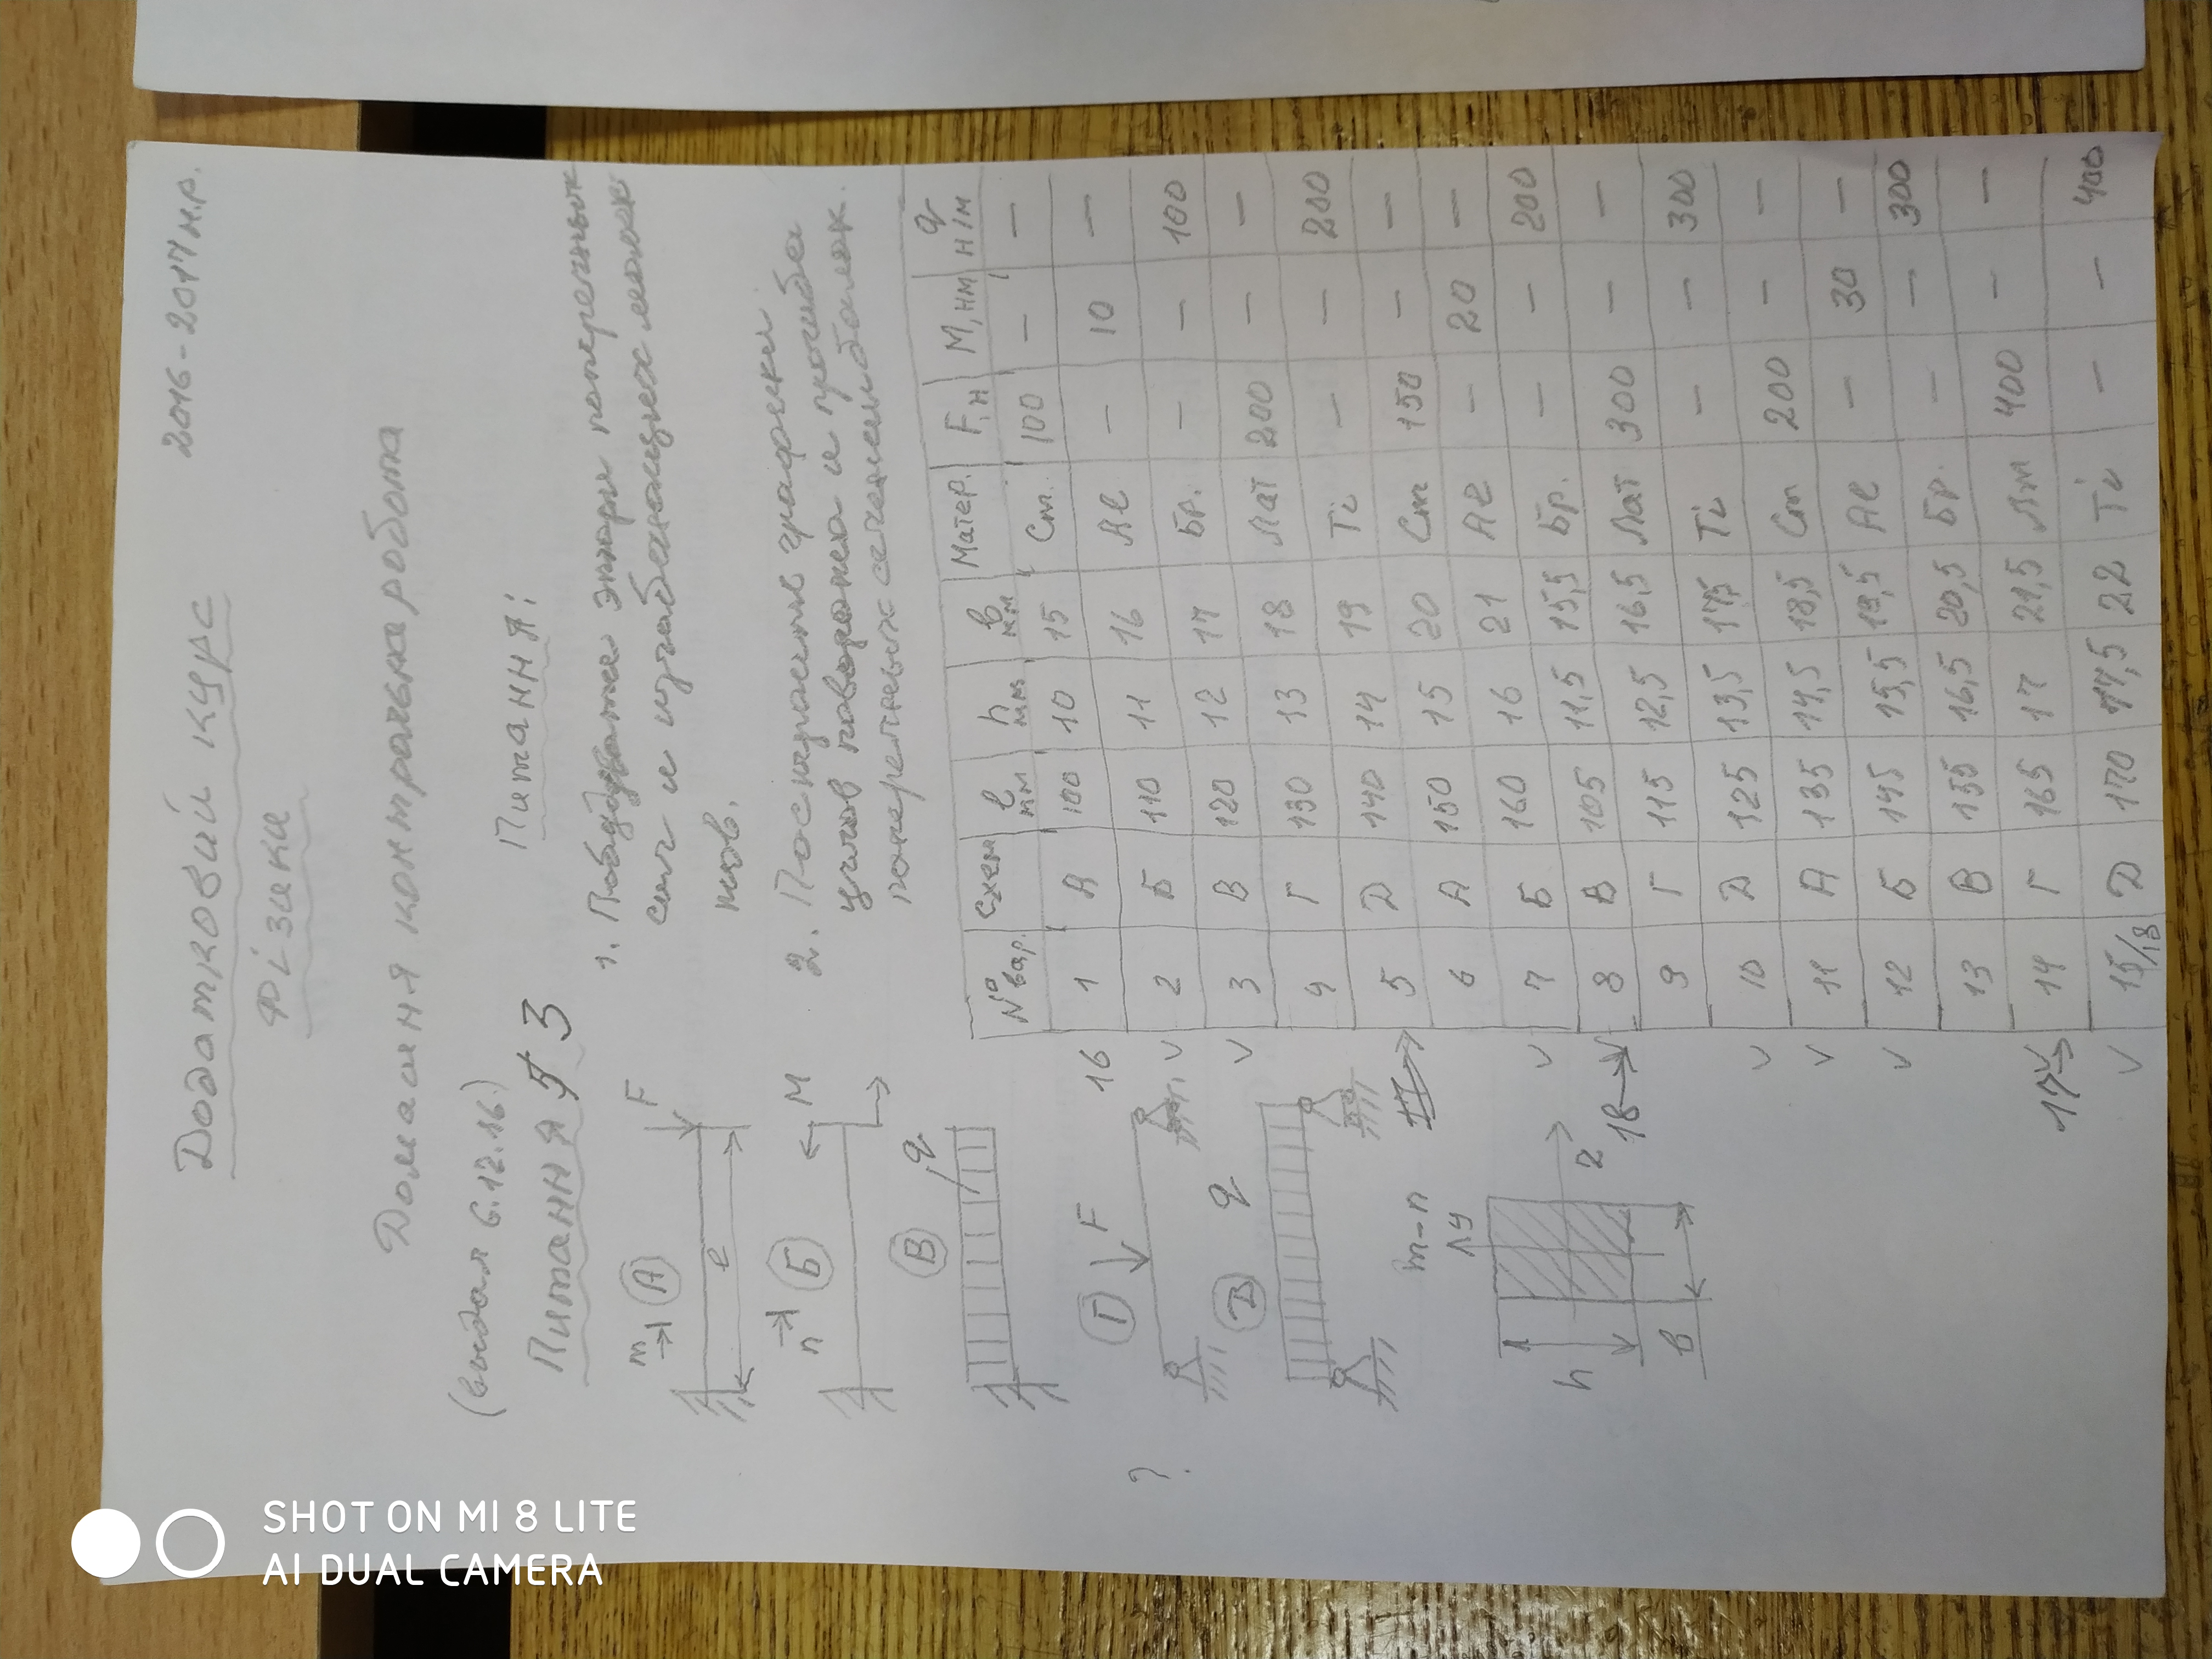 Додатковий курс 2016-2017 н.р.
Фізика
Домашня контрольна робота
(выдал 6.12.16)
Питання 3
Питання:
1. эпюры поперечных
сил и изгибающих момен-
тов.
2. Построить графики
углов поворота и прогиба
поперечных сечений балок.
m
А
F
l
n
Б
M
В
q
Г
F
Д
q
m-n
y
z
h
в
?
16
18
17
№ вар. | схем | l мм | h мм | в мм | Матер. | F, н | M, нм | q н/м
1 | А | 100 | 10 | 15 | Ст. | 100 | — | —
2 | Б | 110 | 11 | 16 | Al | — | 10 | —
3 | В | 120 | 12 | 17 | Бр. | — | — | 100
4 | Г | 130 | 13 | 18 | Лат | 200 | — | —
5 | Д | 140 | 14 | 19 | Ti | — | — | 200
6 | А | 150 | 15 | 20 | Ст | 150 | — | —
7 | Б | 160 | 16 | 21 | Al | — | 20 | —
8 | В | 105 | 11,5 | 15,5 | Бр. | — | — | 200
9 | Г | 115 | 12,5 | 16,5 | Лат | 300 | — | —
10 | Д | 125 | 13,5 | 17,5 | Ti | — | — | 300
11 | А | 135 | 14,5 | 18,5 | Ст | 200 | — | —
12 | Б | 145 | 15,5 | 19,5 | Al | — | 30 | —
13 | В | 155 | 16,5 | 20,5 | Бр. | — | — | 300
14 | Г | 165 | 17 | 21,5 | Лт | 400 | — | —
15/18 | Д | 170 | 17,5 | 22 | Ti | — | — | 400
SHOT ON MI 8 LITE
AI DUAL CAMERA